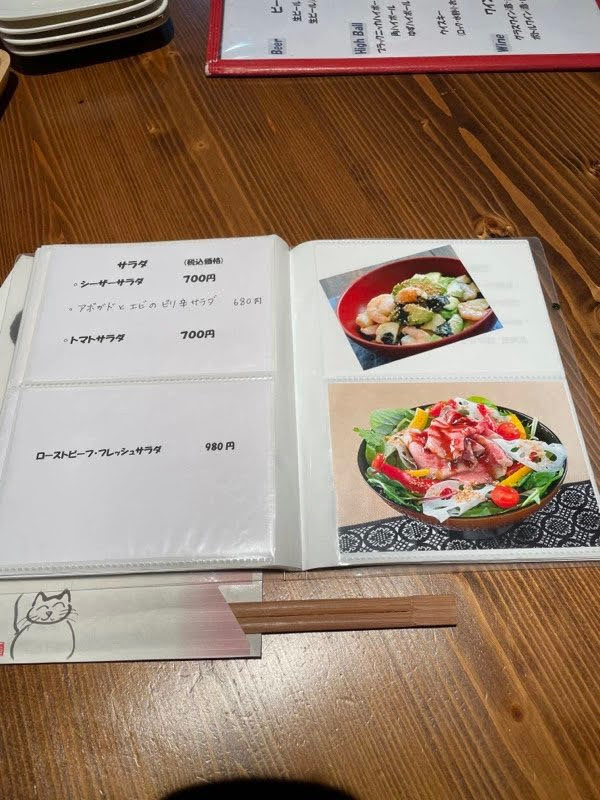 サラダ (税込価格)
・シーザーサラダ 700円
・アボガドとエビのピリ辛サラダ 680円
・トマトサラダ 700円
ローストビーフ・フレッシュサラダ 980円
Beer
生ビール
High Ball
ブラックニッカハイボール
角ハイボール
ゆずハイボール
Wine
ウイスキー